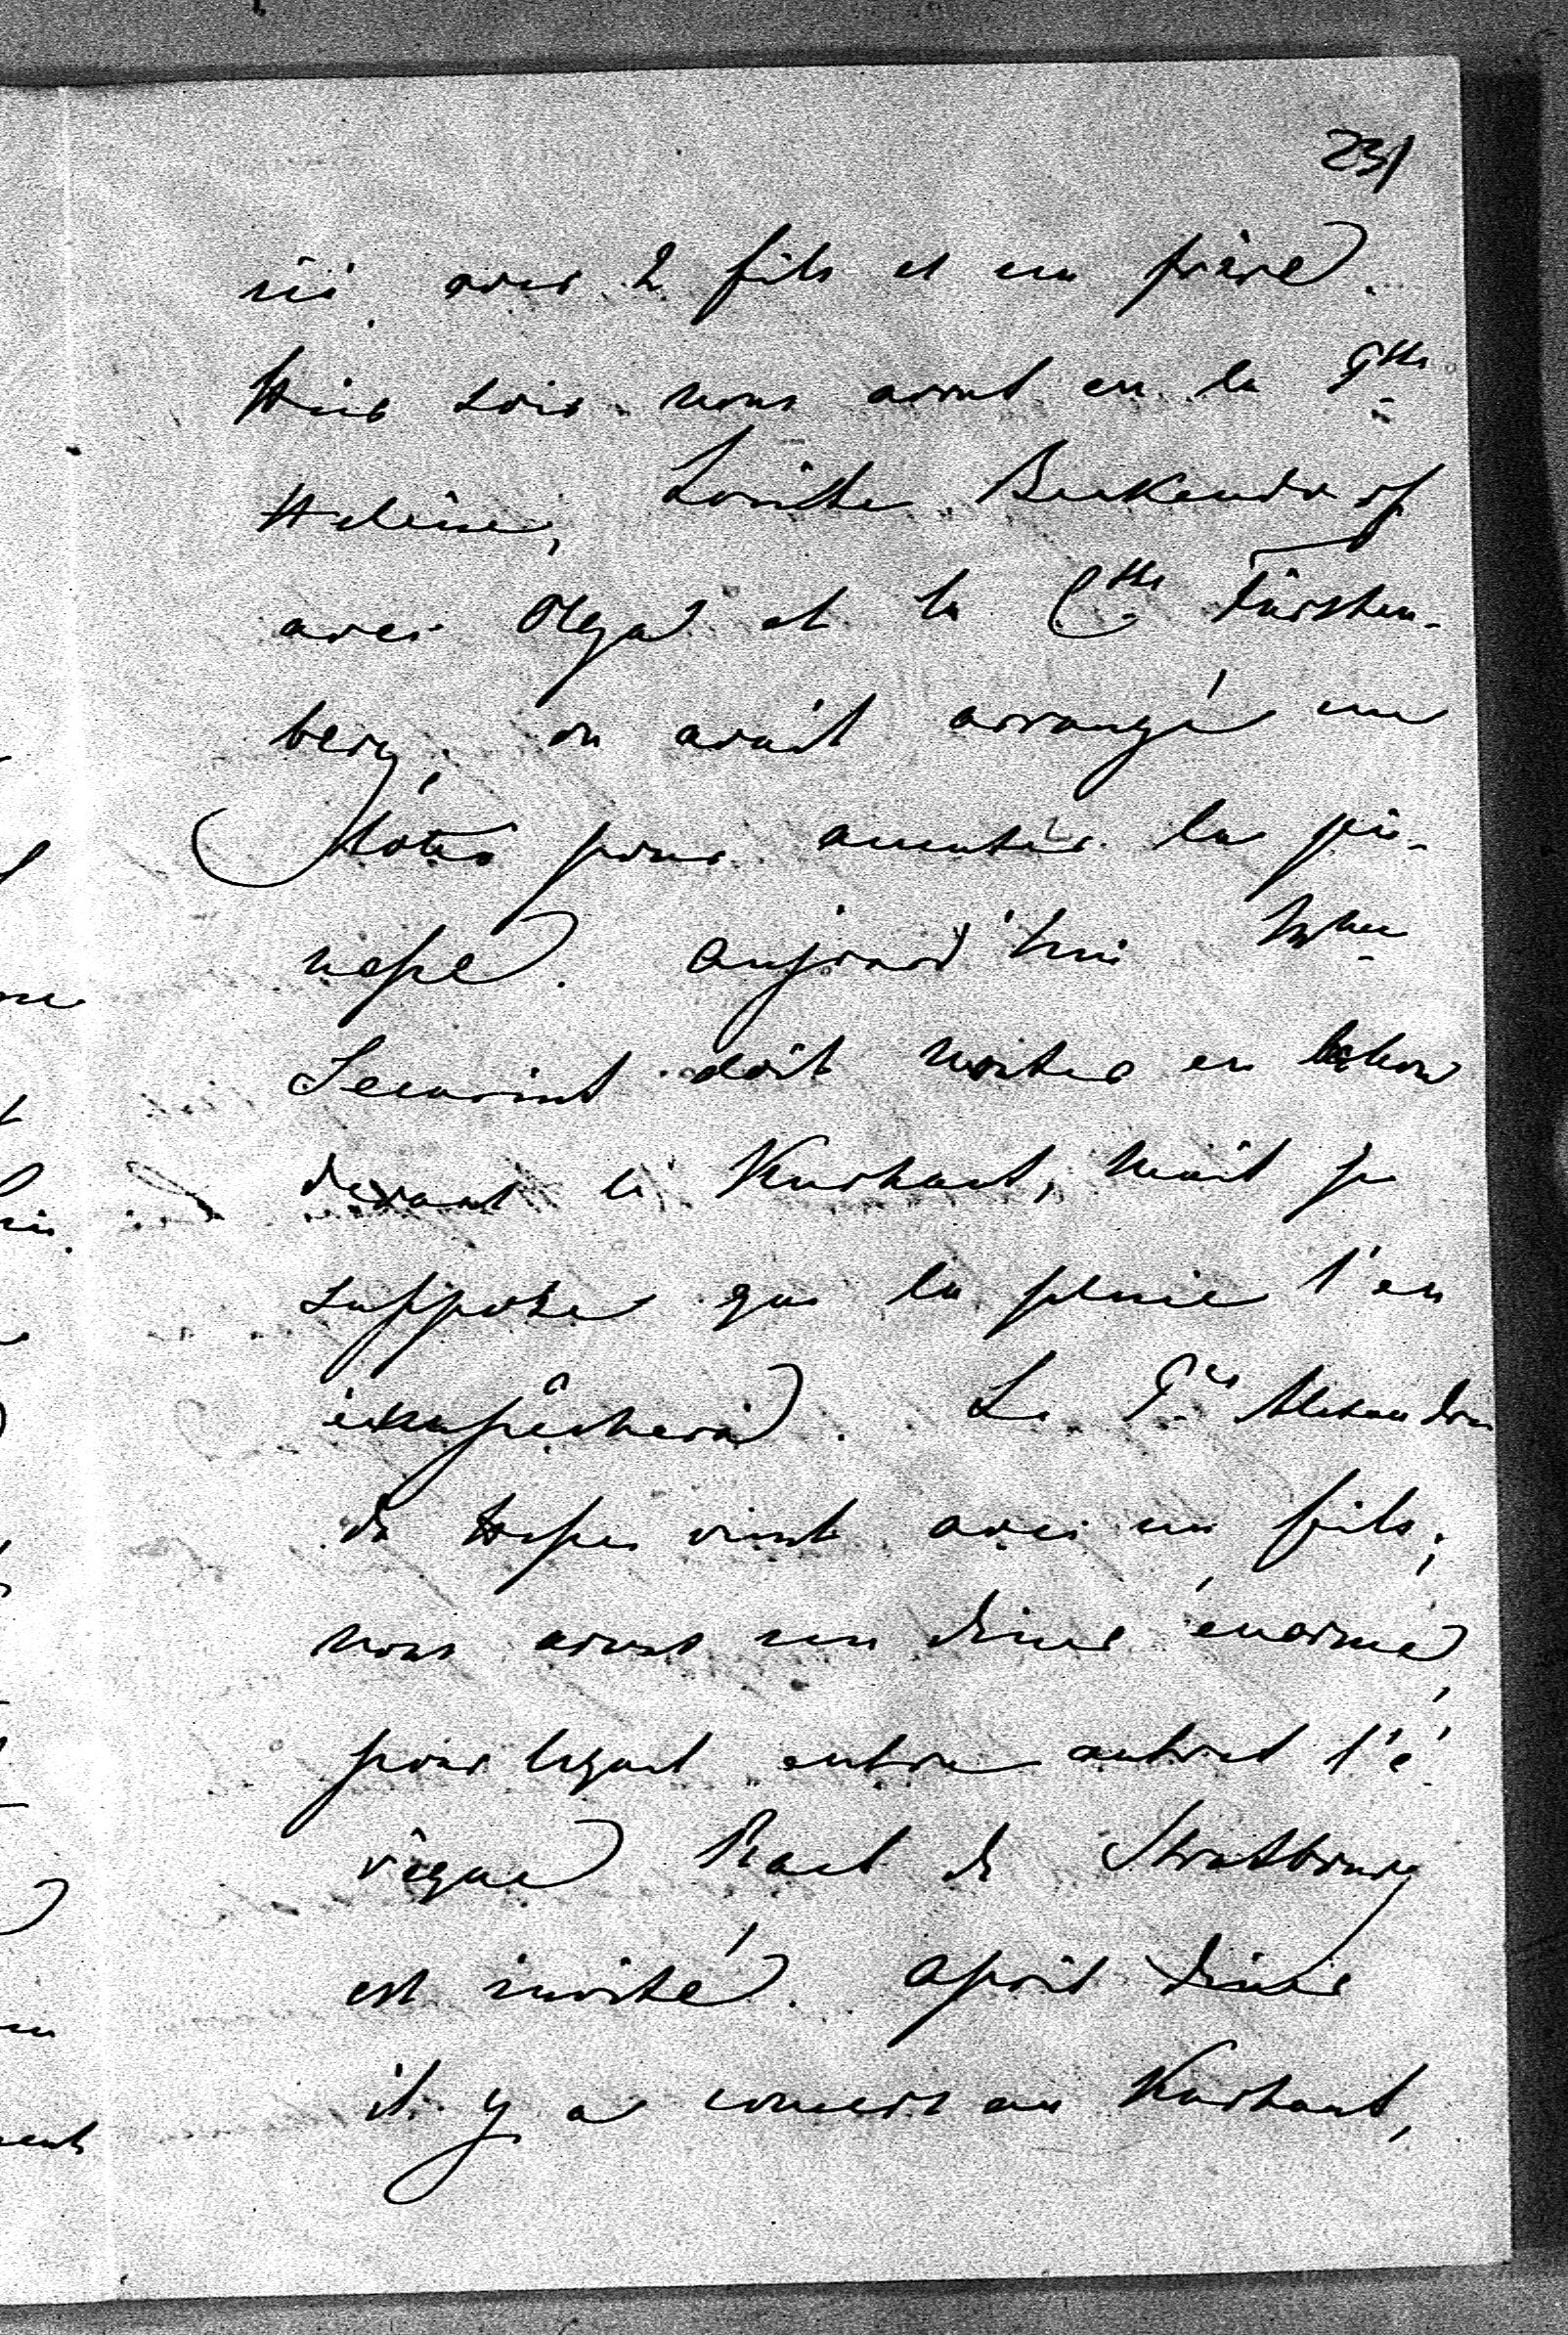 231
avec 2 fils et un frère.
Hier soir nous avons eu la Pᵗˢˢᵉ
Hélène, Louiska Benkendorf
avec Olga et la Cᵗˢˢᵉ Fürsten-
berg; on avait arrangé un
pour amuser la jeu-
nesse. Aujourd'hui Mᵐᵉ
doit monter en ballon
devant le Kurhaus, mais je
suppose que la pluie l'en
empêchera. Le Pᶜᵉ Alexandre
de Hesse vient avec un fils;
nous avons un diner énorme,
pour lequel entre autres l'é-
vêque Raess de Strasbourg
est invité. Après diner
il y a concert au Kurhaus,